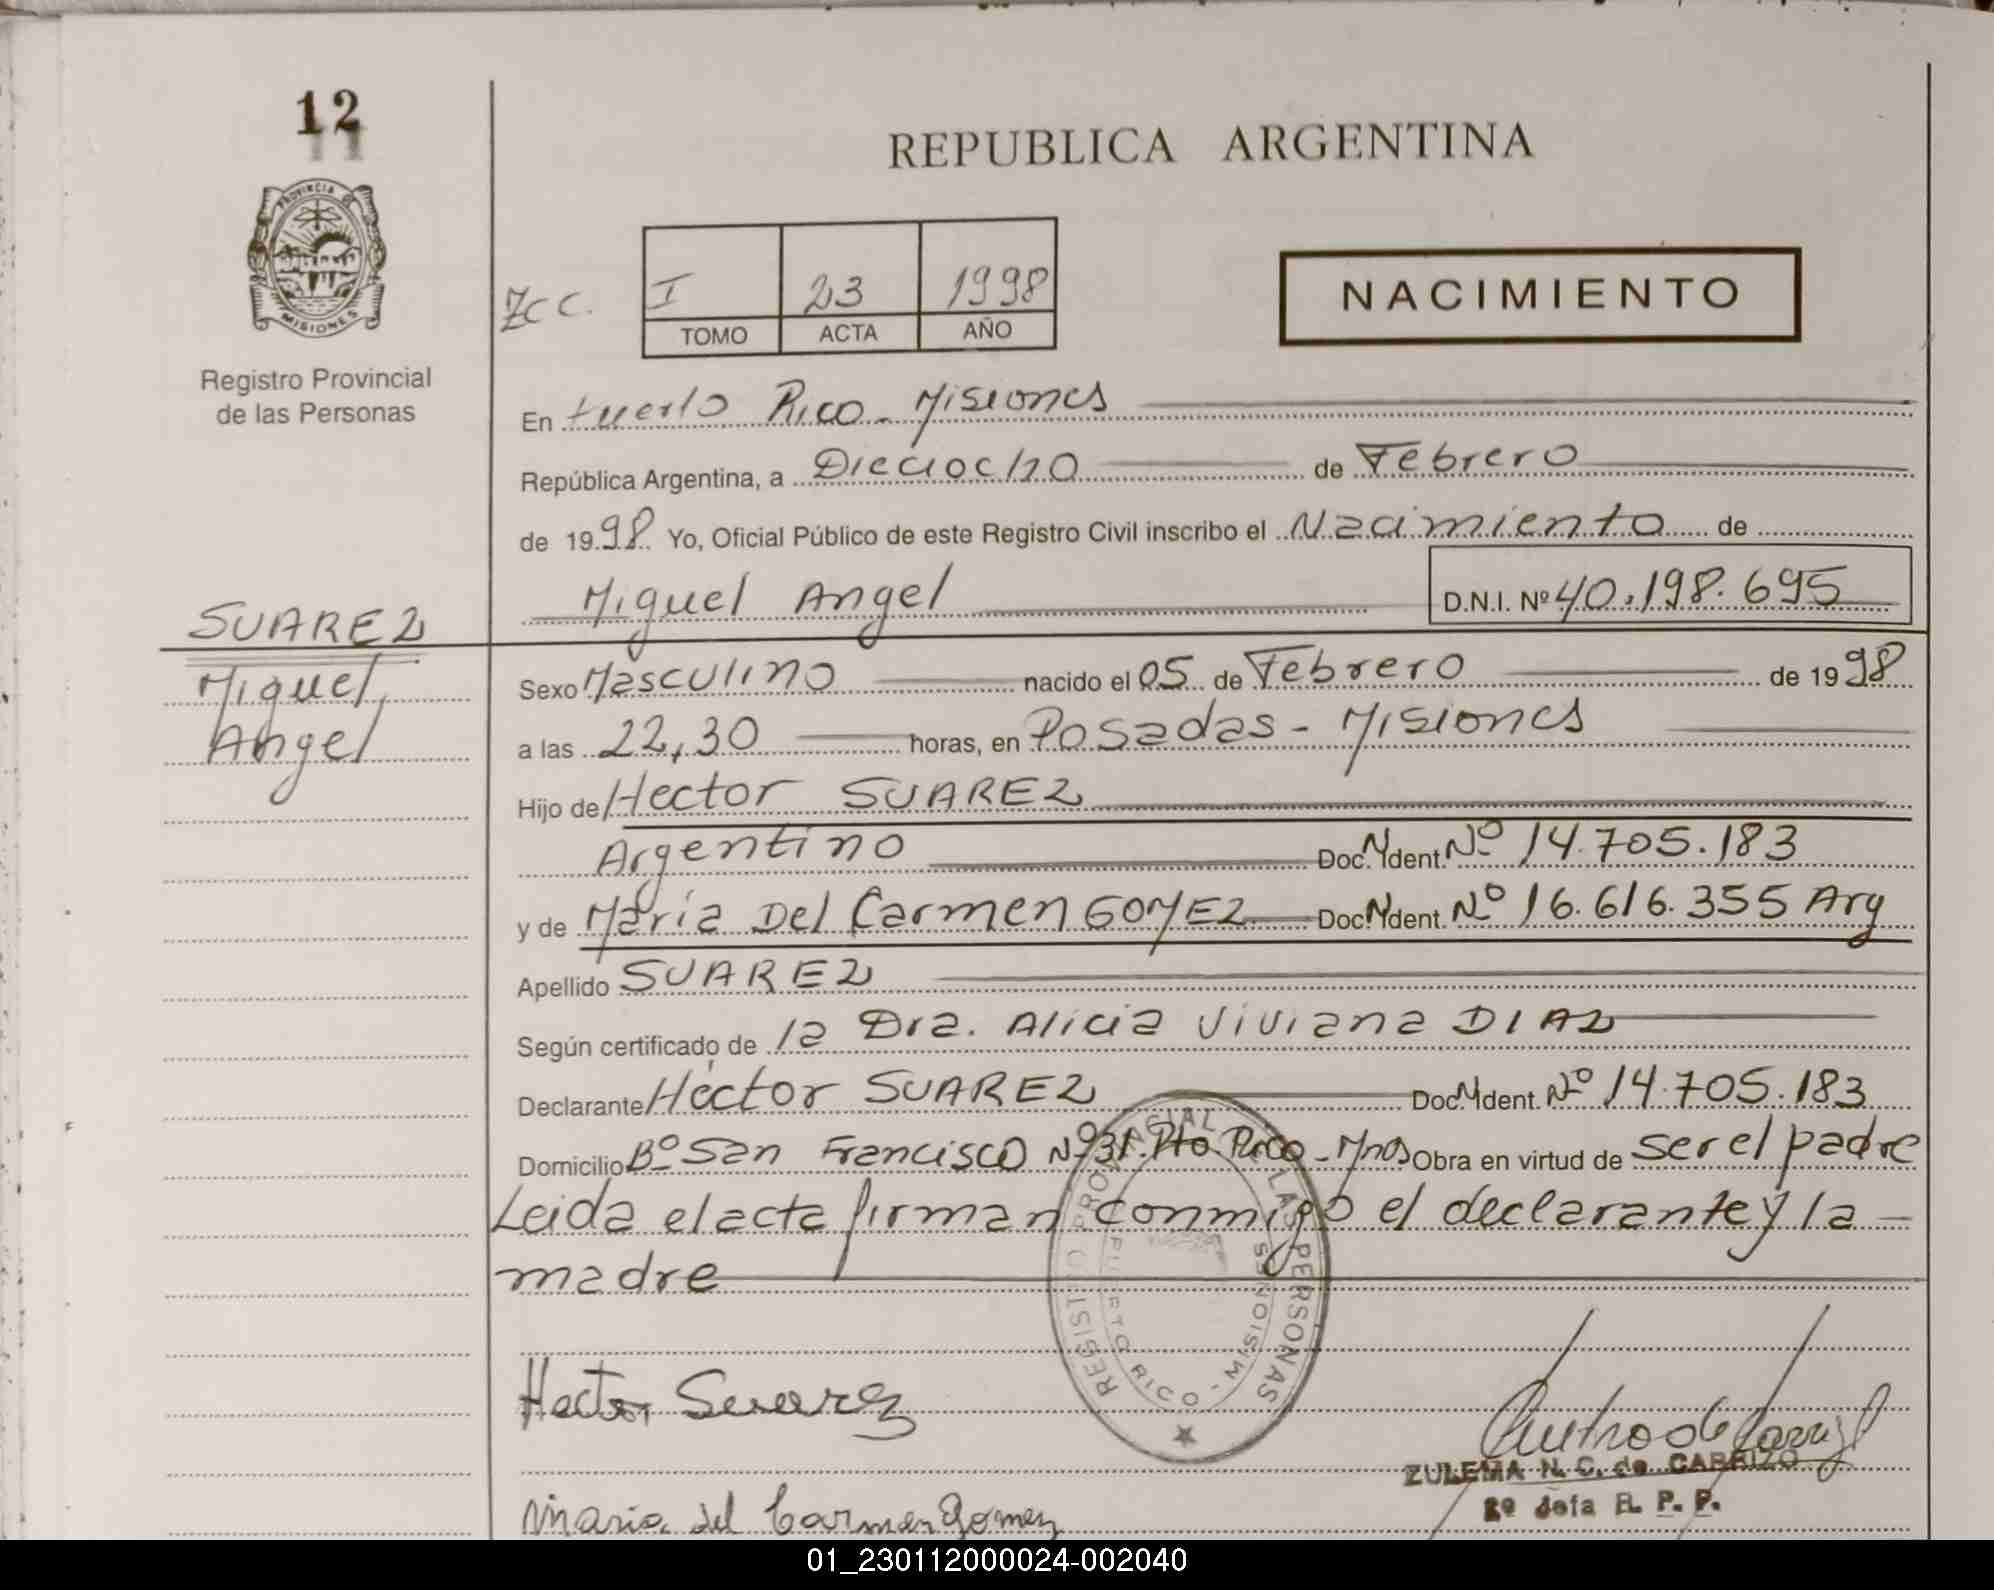 12
11
REPUBLICA ARGENTINA
PROVINCIA DE
MISIONES
Registro Provincial
de las Personas
ZCC.
I 23 1998
TOMO ACTA AÑO
NACIMIENTO
En Puerto Rico - Misiones
República Argentina, a Dieciocho de Febrero
de 1998 Yo, Oficial Público de este Registro Civil inscribo el Nacimiento de
Miguel Angel D.N.I. Nº 40.198.695
SUAREZ
Miguel
Angel
Sexo Masculino nacido el 05 de Febrero de 1998
a las 22,30 horas, en Posadas - Misiones
Hijo de Hector SUAREZ
Argentino Doc. Ident. Nº 14.705.183
y de María Del Carmen GOMEZ Doc. Ident. Nº 16.616.355 Arg
Apellido SUAREZ
Según certificado de la Dra. Alicia Viviana DIAZ
Declarante Hector SUAREZ Doc. Ident. Nº 14.705.183
Domicilio Bº San Francisco Nº 31. Pto. Rico - Mnes Obra en virtud de ser el padre
Leida el acta firman conmigo el declarante y la
madre
REGISTRO PROVINCIAL DE LAS PERSONAS
PUERTO RICO - MISIONES
Hector Suarez
Maria del Carmen Gomez
ZULEMA N. C. de CARRIZO
2º Jefa R. P. P.
01_230112000024-002040